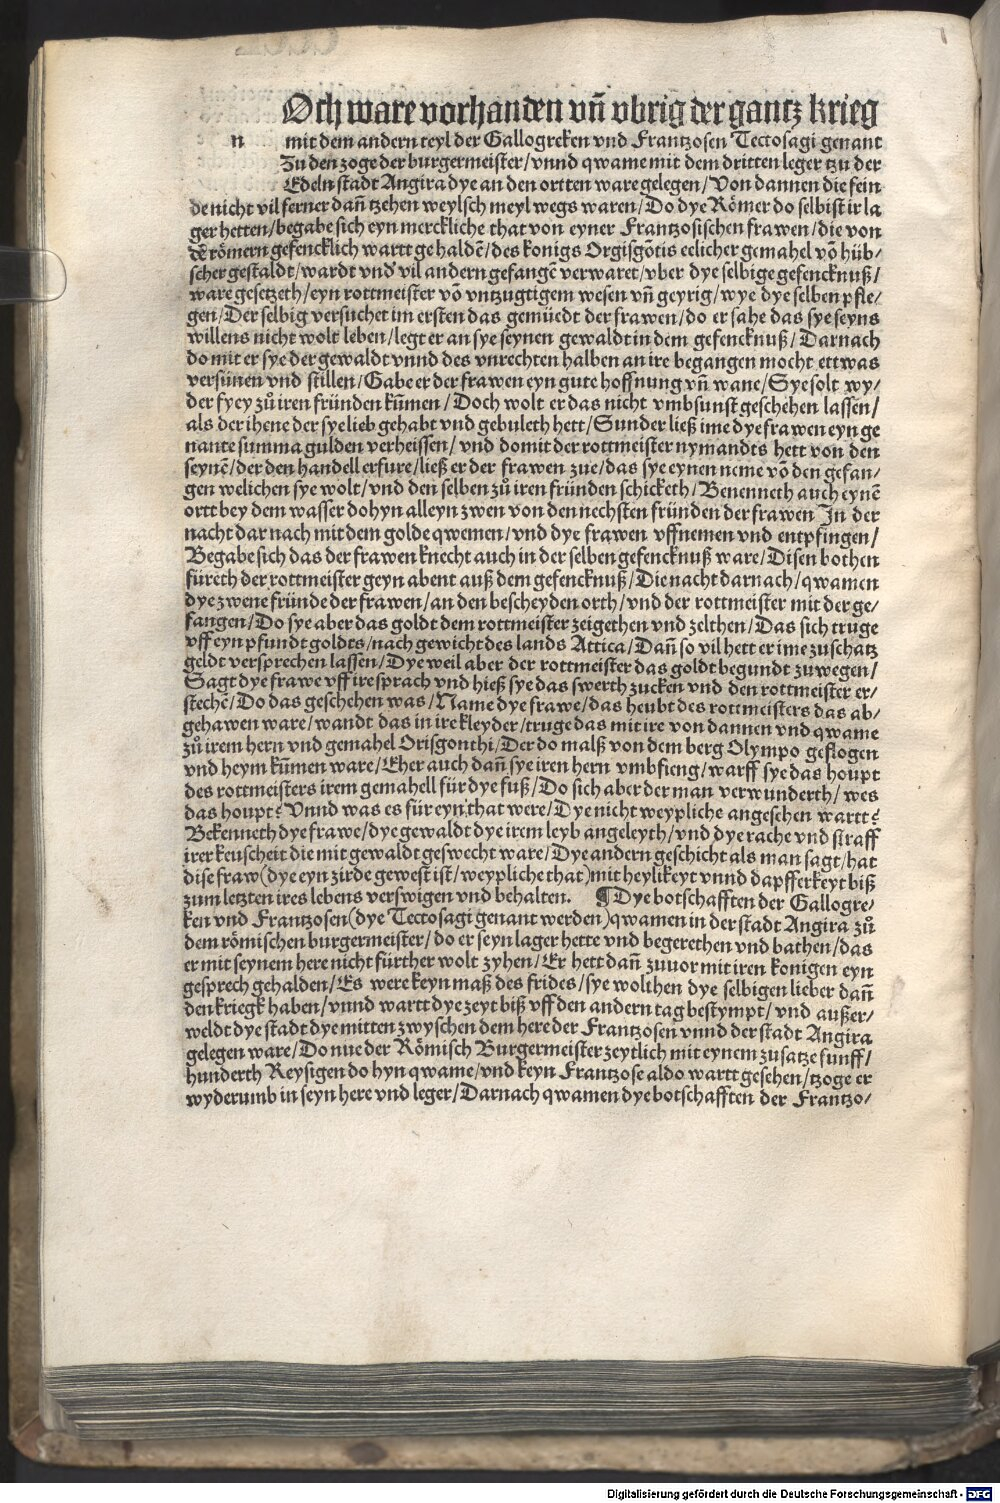 Och ware vorhanden vñ vbrig der gantz krieg
n mit dem andern teyl der Gallogreken vnd Frantzosen Tectosagi genant
In den zoge der burgermeister/vnnd qwame mit dem dritten leger tzu der
Edeln stadt Angira dye an den ortten ware gelegen/Von dannen die fein
de nicht vil ferner dañ tzehen weylsch meyl wegs waren/Do dye Römer do selbist ir la
ger hetten/begabe sich eyn merckliche that von eyner Frantzosischen frawen/die von
dē römern gefencklich wartt gehaldē/des konigs Orgisgōtis eelicher gemahel vō hüb/
scher gestaldt/wardt vnd vil andern gefangē verwaret/vber dye selbige gefencknuß/
ware gesetzeth/eyn rottmeister vō vntzugtigem wesen vñ geyrig/wye dye selben pfle-
gen/Der selbig versuchet im ersten das gemüedt der frawen/do er sahe das sye seyns
willens nicht wolt leben/legt er an sye seynen gewaldt in dem gefencknuß/Darnach
do mit er sye der gewaldt vnnd des vnrechten halben an ire begangen mocht ettwas
versünen vnd stillen/Gabe er der frawen eyn gute hoffnung vñ wane/Sye solt wy/
der fyey zů iren fründen kūmen/Doch wolt er das nicht vmbsunst geschehen lassen/
als der ihene der sye lieb gehabt vnd gebuleth hett/Sunder ließ ime dye frawen eyn ge
nante summa gulden verheissen/vnd domit der rottmeister nymandts hett von den
seynē/der den handell erfure/ließ er der frawen zue/das sye eynen neme vō den gefan/
gen welichen sye wolt/vnd den selben zů iren fründen schicketh/Benenneth auch eynē
ortt bey dem wasser dohyn alleyn zwen von den nechsten fründen der frawen In der
nacht dar nach mit dem golde qwemen/vnd dye frawen vffnemen vnd entpfingen/
Begabe sich das der frawen knecht auch in der selben gefencknuß ware/Disen bothen
füreth der rottmeister geyn abent auß dem gefencknuß/Die nacht darnach/qwamen
dye zwene fründe der frawen/an den bescheyden orth/vnd der rottmeister mit der ge/
fangen/Do sye aber das goldt dem rottmeister zeigethen vnd zelthen/Das sich truge
vff eyn pfundt goldts/nach gewicht des lands Attica/Dañ so vil hett er ime zu schatz
geldt versprechen lassen/Dye weil aber der rottmeister das goldt begundt zu wegen/
Sagt dye frawe vff ire sprach vnd hieß sye das swerth zucken vnd den rottmeister er/
stechē/Do das geschehen was/Name dye frawe/das heubt des rottmeisters das ab/
gehawen ware/wandt das in ire kleyder/truge das mit ire von dannen vnd qwame
zů irem hern vnd gemahel Orisgonthi/Der do malß von dem berg Olympo geflogen
vnd heym kūmen ware/Eher auch dañ sye iren hern vmbfieng/warff sye das houpt
des rottmeisters irem gemahell für dye fuß/Do sich aber der man verwunderth/wes
das houpt? Vnnd was es für eyn that were/Dye nicht weypliche angesehen wartt?
Bekenneth dye frawe/dye gewaldt dye irem leyb angeleyth/vnd dye rache vnd straff
irer keuscheit die mit gewaldt geswecht ware/Dye andern geschicht als man sagt/hat
dise fraw (dye eyn zirde gewest ist/weypliche that) mit heylikeyt vnnd dapfferkeyt biß
zum letzten ires lebens verswigen vnd behalten. ¶ Dye botschafften der Gallogre/
ken vnd Frantzosen (dye Tectosagi genant werden) qwamen in der stadt Angira zů
dem römischen burgermeister/do er seyn lager hette vnd begerethen vnd bathen/das
er mit seynem here nicht fürther wolt zyhen/Er hett dañ zuvor mit iren konigen eyn
gesprech gehalden/Es were keyn maß des frides/sye wolthen dye selbigen lieber dañ
den kriegk haben/vnnd wartt dye zeyt biß vff den andern tag bestympt/vnd außer/
weldt dye stadt dye mitten zwyschen dem here der Frantzosen vnnd der stadt Angira
gelegen ware/Do nue der Römisch Burgermeister zeytlich mit eynem zusatze funff/
hunderth Reysigen do hyn qwame/vnd keyn Frantzose aldo wartt gesehen/tzoge er
wyderumb in seyn here vnd leger/Darnach qwamen dye botschafften der Frantzo/
Digitalisierung gefördert durch die Deutsche Forschungsgemeinschaft - DFG